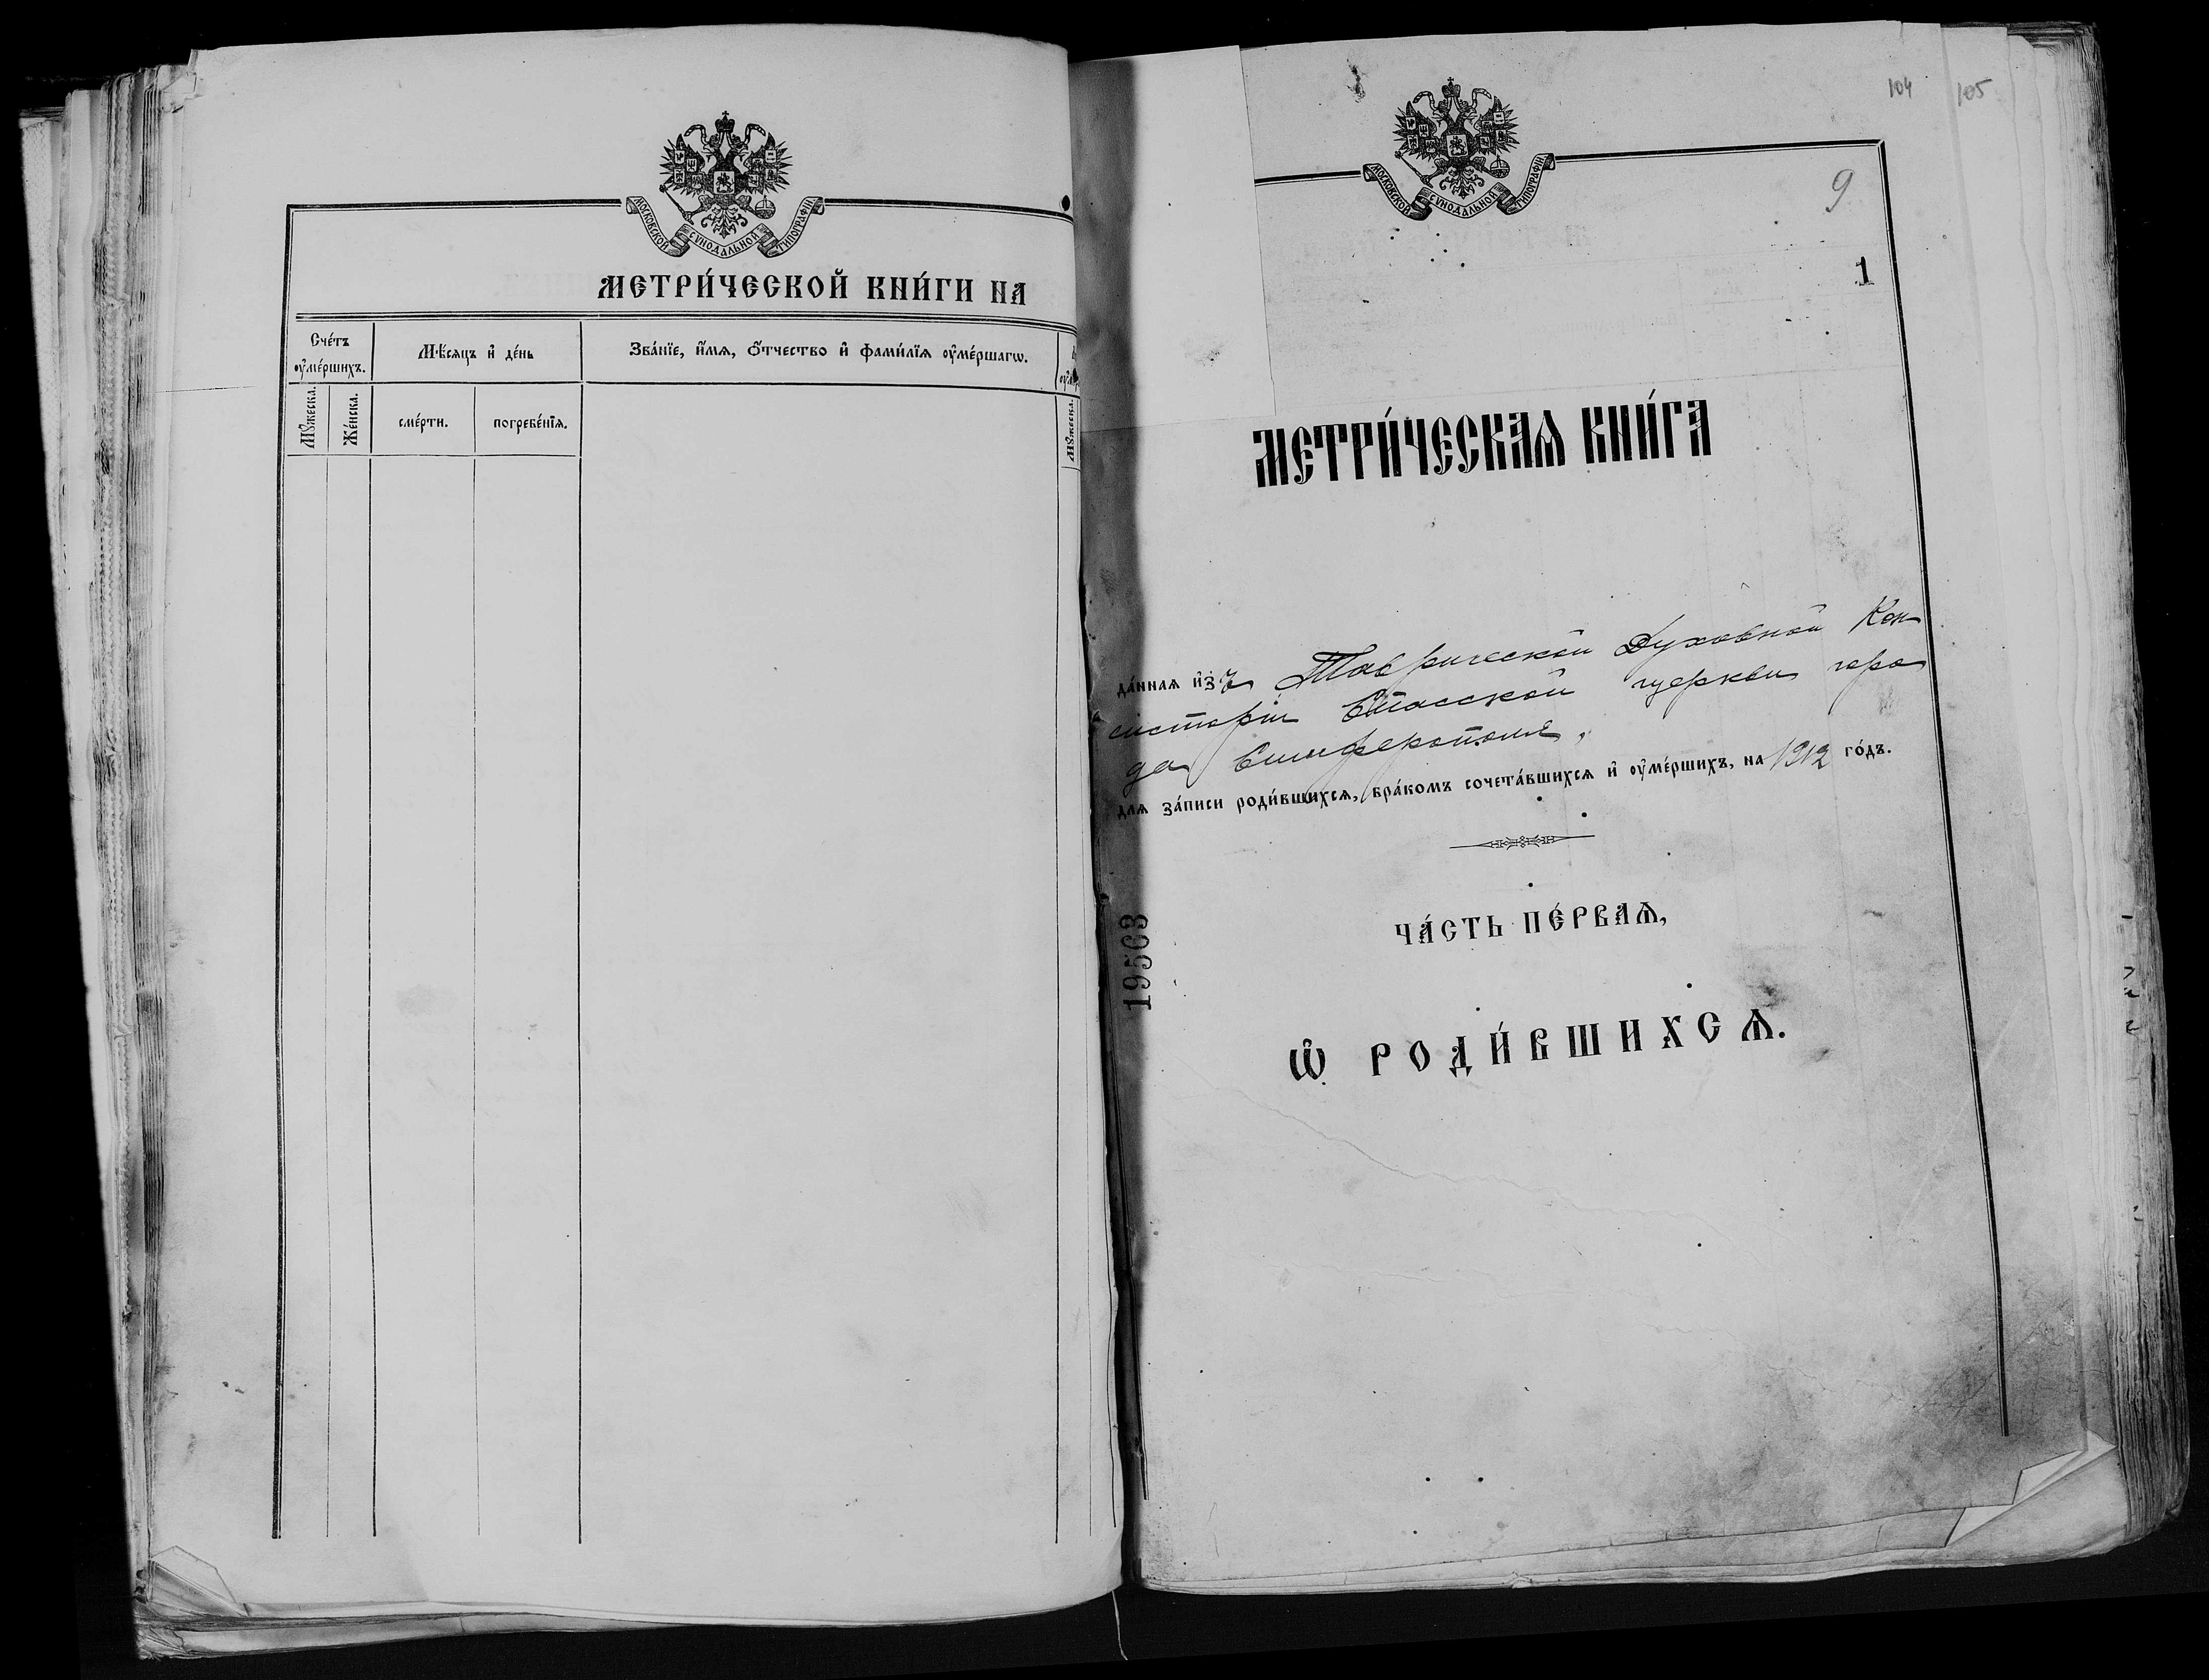 МОСКОВСКОЙ СѴНОДАЛЬНОЙ ТИПОГРАФІИ
МЕТРИ́ЧЕСКОЙ КНИ́ГИ НА
Сче́тъ ᲂу҆ме́ршихъ.
Мѣ́сяцъ и҆ де́нь
Зва́нїе, и҆́мѧ, ѻ҆́тчество и҆ фами́лїѧ ᲂу҆ме́ршагѡ.
Мꙋ́жеска.
Же́нска.
сме́рти.
погребе́нїѧ.
Мꙋ́жеска.
104
105
МОСКОВСКОЙ СѴНОДАЛЬНОЙ ТИПОГРАФІИ
9
1
МЕТРИ́ЧЕСКАѦ КНИ́ГА
да́ннаѧ и҆зъ Таврической Духовной Кон
систоріи Спасской церкви горо
да Симферополя,
длѧ за́писи роди́вшихсѧ, бра́комъ сочета́вшихсѧ и҆ ᲂу҆ме́ршихъ, на 1912 го́дъ.
ЧА́СТЬ ПЕ́РВАѦ,
19563
Ѽ РОДИ́ВШИХСѦ.